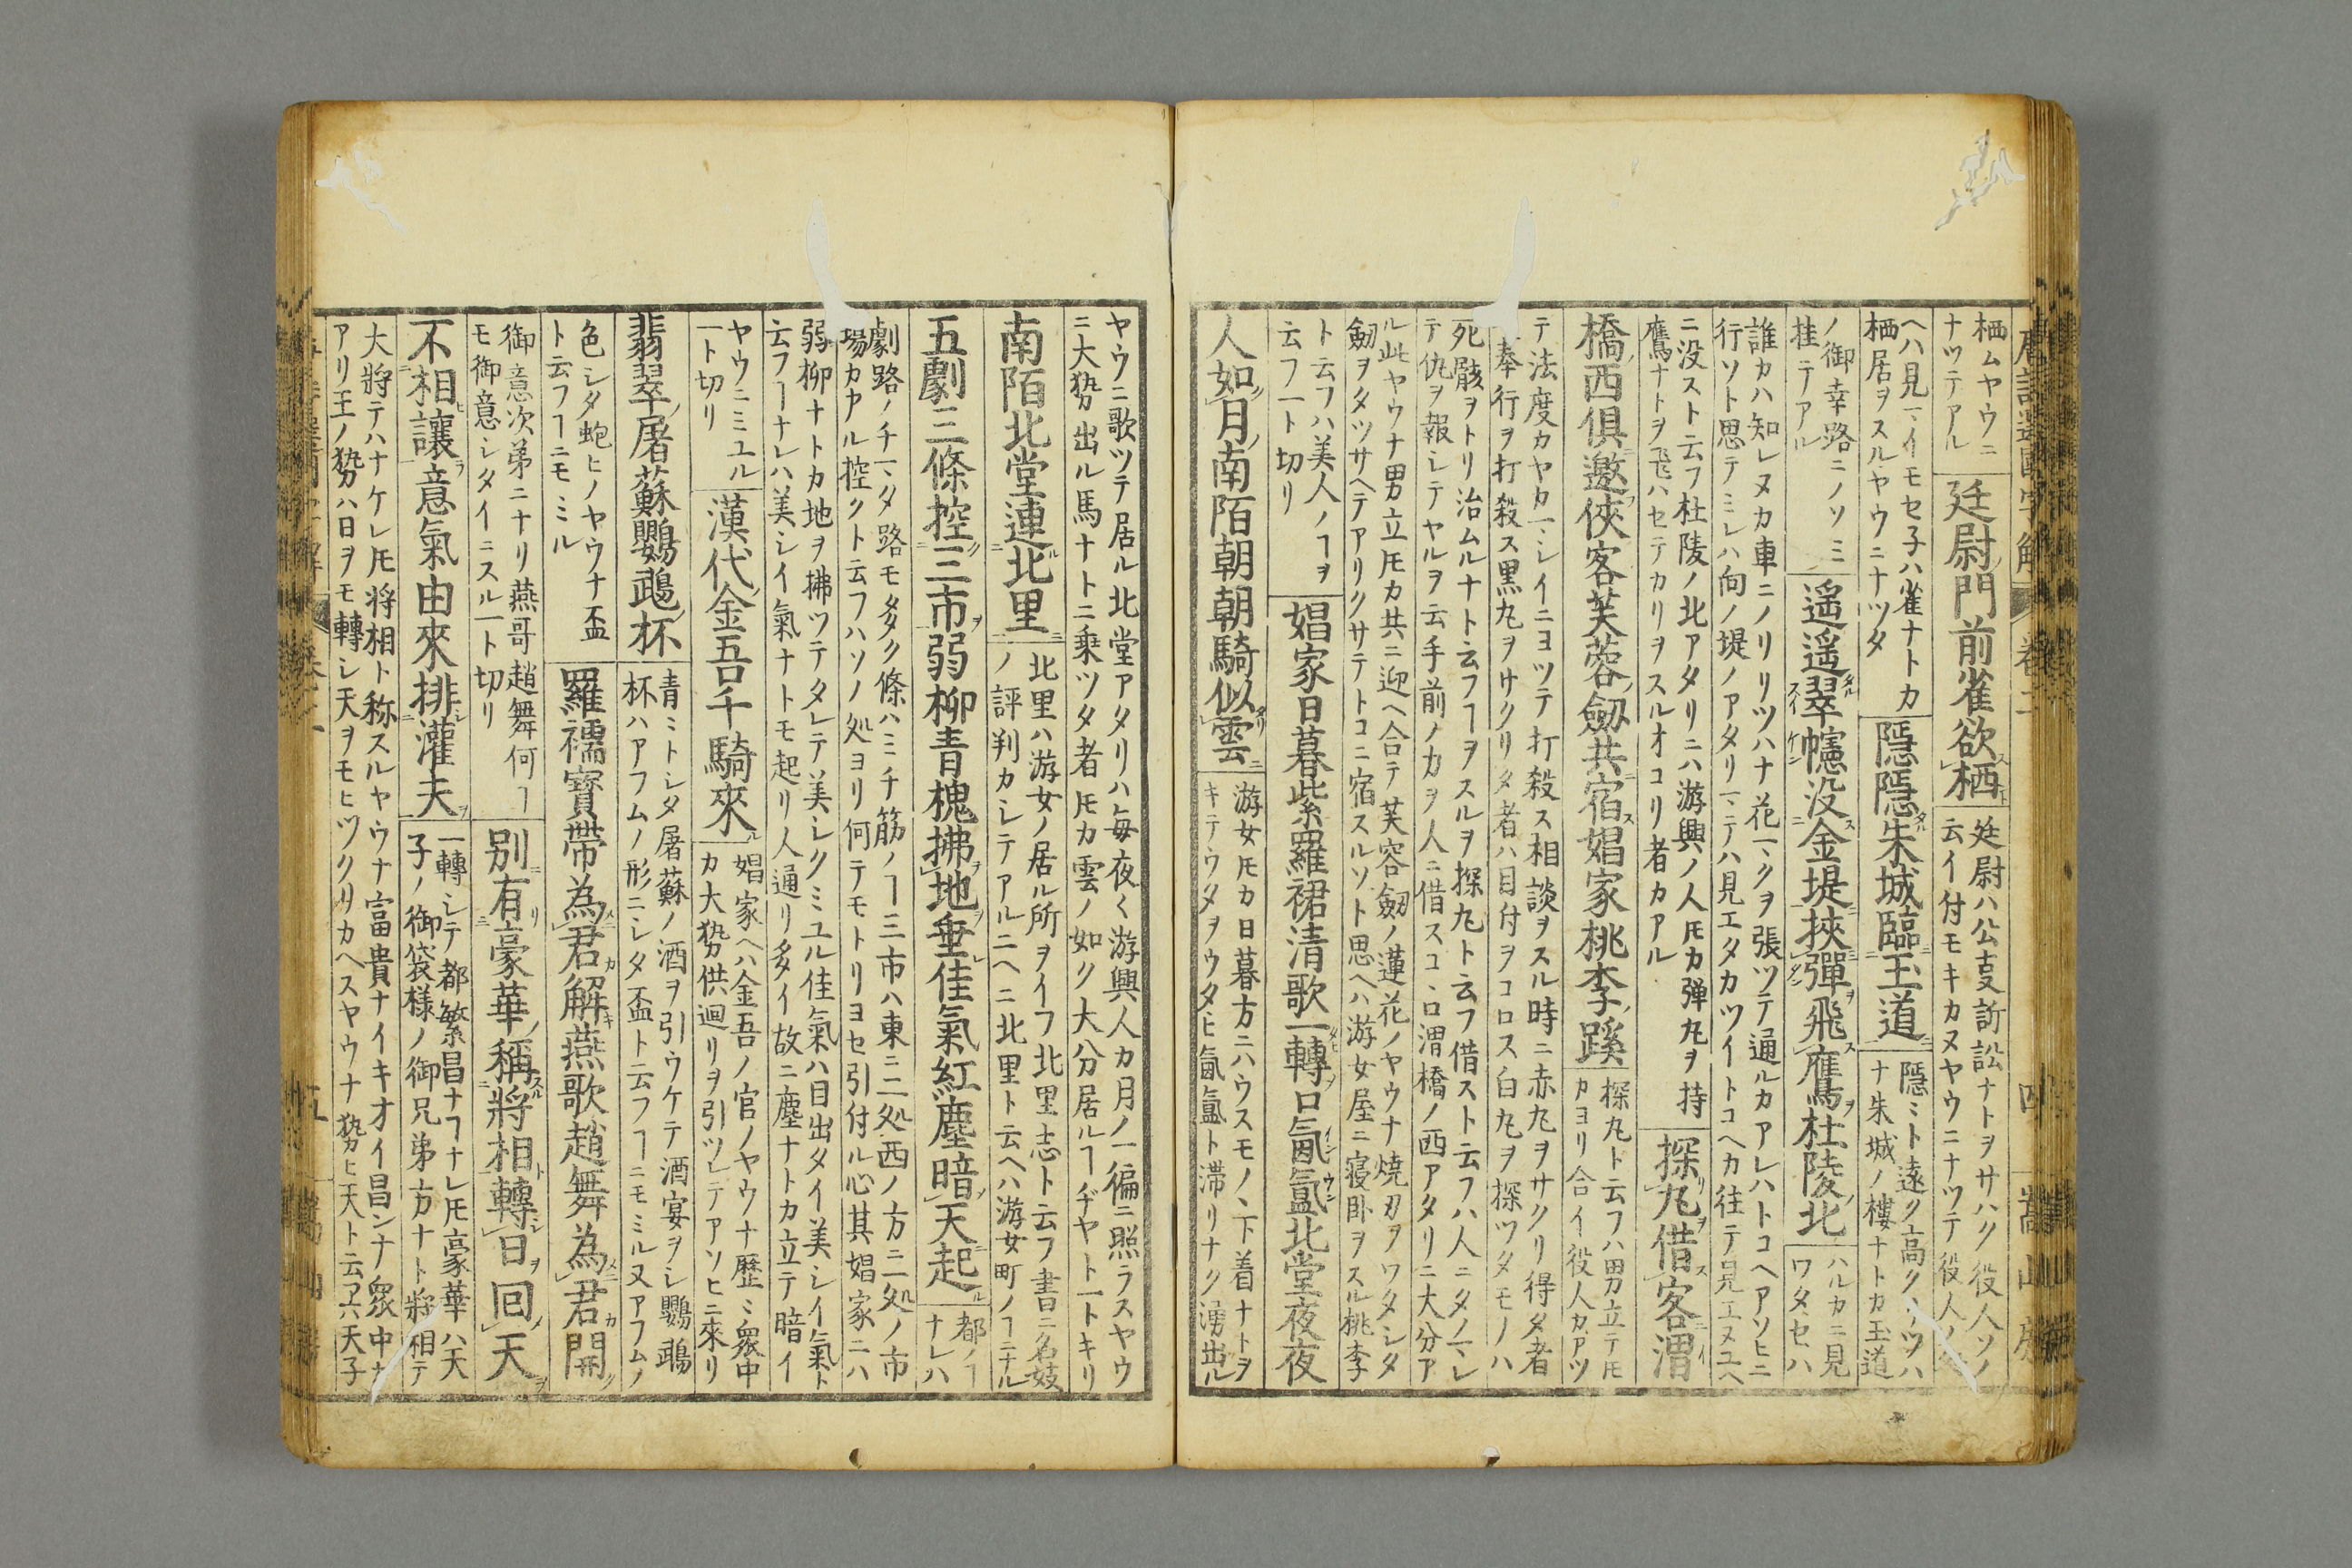 栖ムヤウニ
ナツテアル
廷尉門前雀欲栖
廷尉ハ公叓訴訟ナトヲサハク役人ソノ
云イ付モキカヌヤウニナツテ役人ノ
ヘハ見一ヽイモセ子ハ雀ナトカ
栖居ヲスルヤウニナツタ
隱隱朱城臨玉道
隱ミト遠ク高ク
ナ朱城ノ樓ナトカ玉道
ノ御幸路ニノソミ
桂テアル
遥遥翠幰没金堤挾彈飛鷹杜陵北
ハルカニ見
ワタセハ
誰カハ知レヌカ車ニノリリツハナ花一ヽクヲ張ツテ通ルカアレハトコヘアソヒニ
行ソト思テミレハ向ノ堤ノアタリ一ヽテハ見エタカツイトコヘカ往テ見エヌユヘ
ニ没スト云フ杜陵ノ北アタリニハ游興ノ人𪜈カ弾丸ヲ持
鷹ナトヲ飛ハセテカリヲスルオコリ者カアル
探丸借客渭
橋西俱邀俠客芙蓉劔共宿娼家桃李蹊
探丸ト云フハ男立テ𪜈
カヨリ合イ役人カアツ
テ法度カヤカ一ヽシイニヨツテ打殺ス相談ヲスル時ニ赤丸ヲサクリ得タ者
奉行ヲ打殺ス黒丸ヲサクリタ者ハ目付ヲコロス白丸ヲ探ツタモノハ
死骸ヲトリ治ムルナト云フヿヲスルヲ探丸ト云フ借スト云フハ人ニタノ一ヽレ
テ仇ヲ報シテヤルヲ云手前ノカヲ人ニ借スコヽロ渭橋ノ西アタリニ大分ア
ル此ヤウナ男立𪜈カ共ニ迎ヘ合テ芙容劔ノ蓮花ノヤウナ焼刃ヲワタシタ
劔ヲタツサヘテアリクサテトコニ宿スルソト思ヘハ游女屋ニ寝卧ヲスル桃李
ト云フハ美人ノヿヲ
云フ一ト切リ
娼家日暮紫羅裙清歌一轉口氤氳北堂夜夜
人如月南陌朝朝騎似雲
游女𪜈カ日暮方ニハウスモノヽ下着ナトヲ
キテウタヲウタヒ氤氳ト滞リナク湧出ル
ヤウニ歌ツテ居ル北堂アタリハ毎夜く游興人カ月ノ一偏ニ照ラスヤウ
ニ大㔟出ル馬ナトニ乗ツタ者𪜈カ雲ノ如ク大分居ルヿヂヤト一トキリ
南陌北堂連北里
北里ハ游女ノ居ル所ヲイフ北里志ト云フ書ニ名妓
ノ評判カシテアルニヘニ北里ト云ヘハ游女町ノヿニナル
五劇三條控三市弱柳青槐拂地垂佳氣紅塵暗天起
都ノヿ
ナレハ
劇路ノチ一ヽタ路モ多ク條ハミチ筋ノヿ三市ハ東ニ二処西ノ方ニ一処ノ市
場カアル控クト云フハソノ処ヨリ何テモトリヨセ引付ル心其娼家ニハ
弱柳ナトカ地ヲ拂ツテタレテ美シクミユル佳氣ハ目出タイ美シイ氣ト
云フヿナレハ美シイ氣ナトモ起リ人通リ多イ故ニ塵ナトカ立テ暗イ
ヤウニミユル
一ト切リ
漢代金吾千騎來
娼家ヘハ金吾ノ官ノヤウナ歴ミ衆中
カ大㔟供廻リヲ引ツレテアソヒニ來リ
翡翠屠蘇鸚鵡杯
青ミトシタ屠蘇ノ酒ヲ引ウケテ酒宴ヲシ鸚鵡
杯ハアフムノ形ニシタ盃ト云フヿニモミル又アフムノ
色シタ蚫ヒノヤウナ盃
ト云フヿニモミル
羅襦寶帶為君解燕歌趙舞為君開
御意次弟ニナリ燕哥趙舞何ヿ
モ御意シタイニスル一ト切リ
別有豪華稱將相轉日回天
不相讓意氣由來排灌夫
一轉シテ都繁昌ナフヿナレ𪜈豪華ハ天
子ノ御袋様ノ御兄弟方ナト將相テ
大將テハナケレ𪜈将相ト称スルヤウナ富貴ナイキオイ昌ンナ衆中
アリ王ノ㔟ハ日ヲモ轉シ天ヲモヒツクリカヘスヤウナ㔟ヒ天ト云六天子